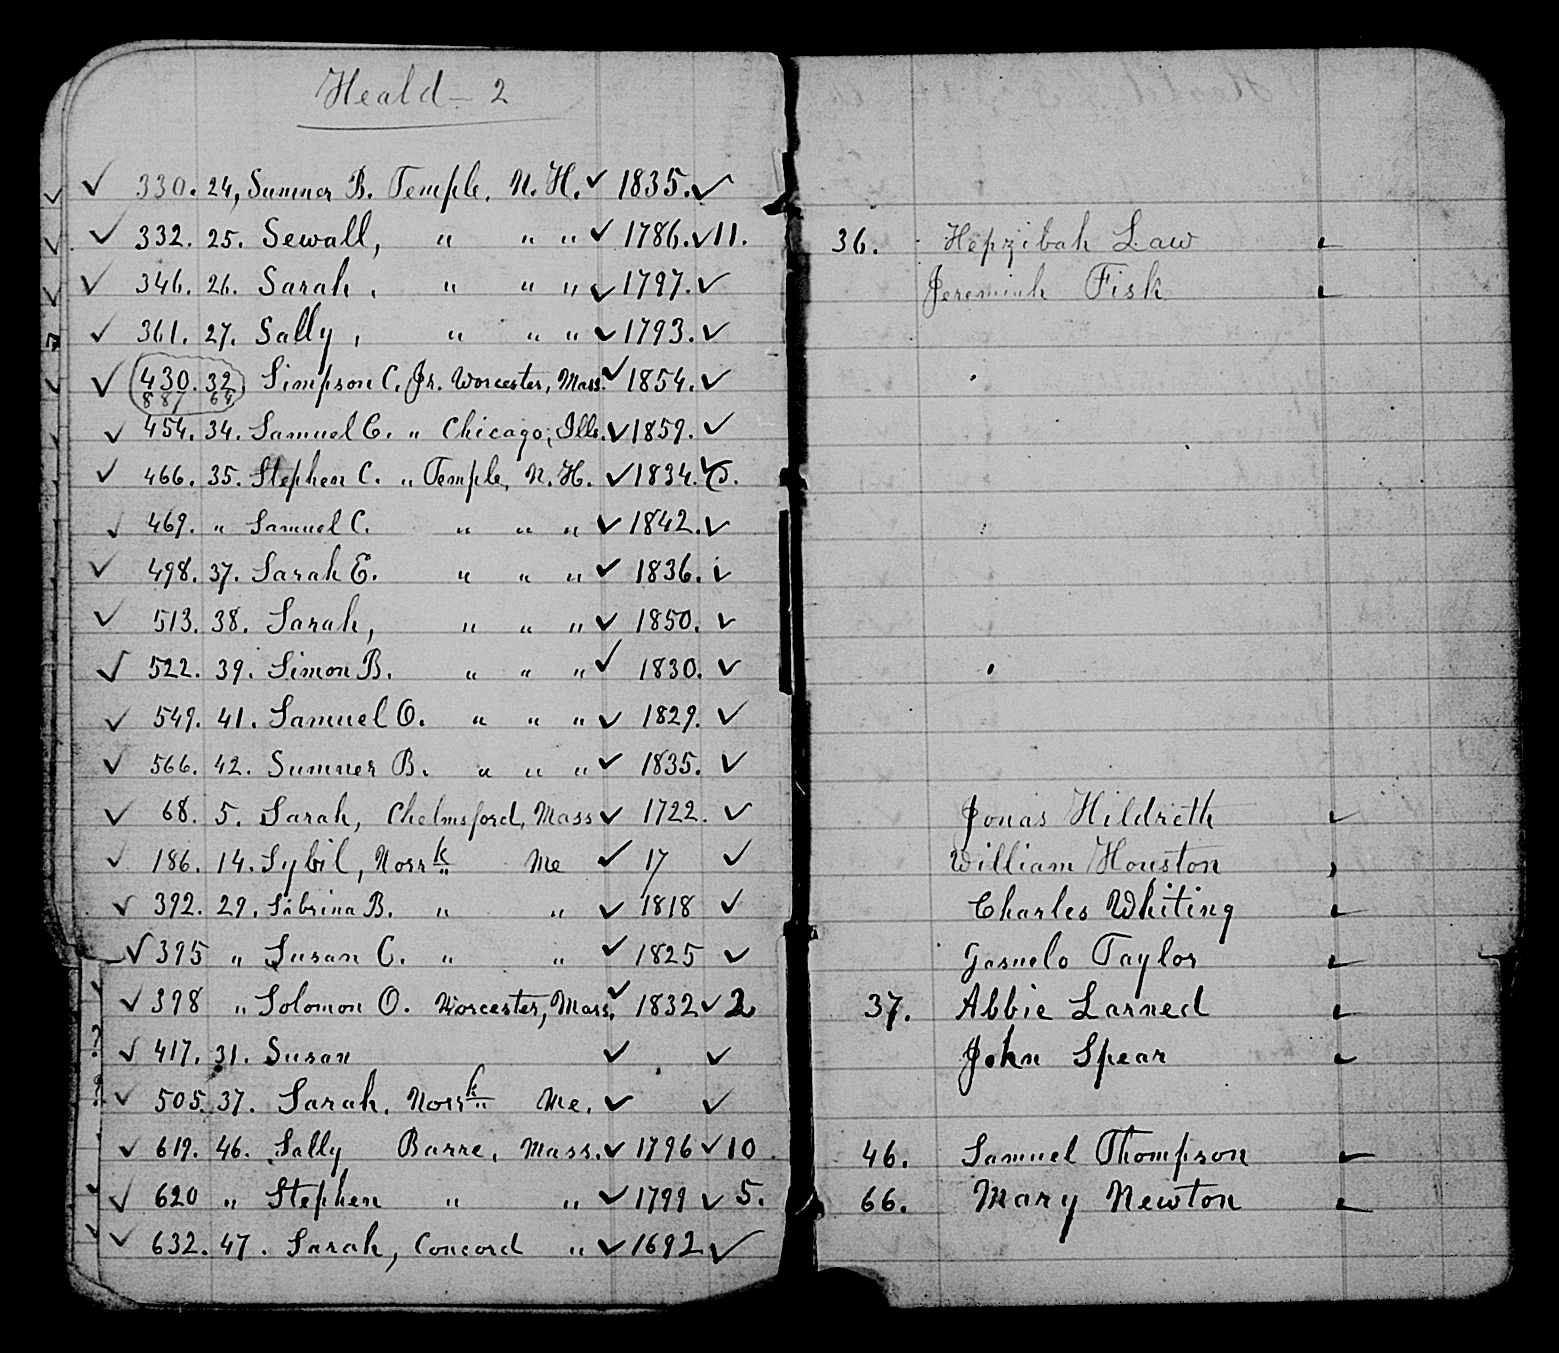 Heald - 2
✓ 330. 24, Sumner B. Temple, N. H. ✓ 1835. ✓
✓ 332. 25. Sewall, " " " ✓ 1786. ✓ 11. 36. Hepzibah Law ✓
✓ 346. 26. Sarah, " " " ✓ 1797. ✓ Jeremiah Fisk ✓
✓ 361. 27. Sally, " " " ✓ 1793. ✓
✓ 430. 32 Simpson C. Jr. Worcester, Mass. ✓ 1854. ✓
887 64
✓ 454. 34. Samuel C. " Chicago, Ills. ✓ 1859. ✓
✓ 466. 35. Stephen C. " Temple, N. H. ✓ 1834. ✓
✓ 469. " Samuel C. " " " ✓ 1842. ✓
✓ 498. 37. Sarah E. " " " ✓ 1836. ✓
✓ 513. 38. Sarah, " " " ✓ 1850. ✓
✓ 522. 39. Simon B. " " " ✓ 1830. ✓
✓ 549. 41. Samuel O. " " " ✓ 1829. ✓
✓ 566. 42. Sumner B. " " " ✓ 1835. ✓
✓ 68. 5. Sarah, Chelmsford, Mass ✓ 1722. ✓ Jonas Hildreth ✓
✓ 186. 14. Sybil, Norrk Me ✓ 17 ✓ William Houston
✓ 392. 29. Sabrina B. " " ✓ 1818 ✓ Charles Whiting ✓
✓ 395 " Susan C. " " ✓ 1825 ✓ Taylor ✓
✓ 398 " Solomon O. Worcester, Mass. ✓ 1832 ✓ 2. 37. Abbie Larned ✓
? ✓ 417. 31. Susan ✓ ✓ John Spear ✓
? ✓ 505. 37. Sarah. Norrk Me. ✓ ✓
✓ 619. 46. Sally Barre, Mass. ✓ 1796 ✓ 10 46. Samuel Thompson ✓
✓ 620 " Stephen " " ✓ 1799 ✓ 5. 66. Mary Newton ✓
✓ 632. 47. Sarah, Concord " ✓ 1692 ✓